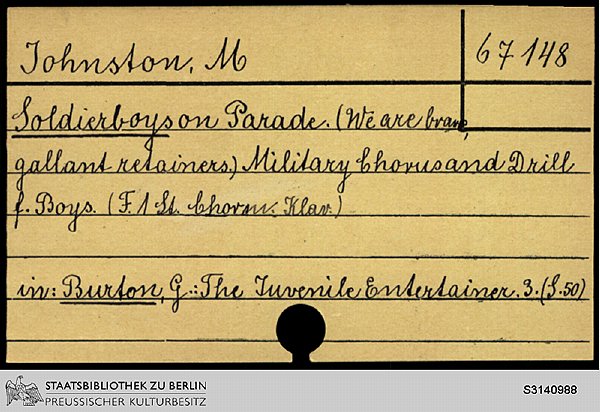 Johnston, M
67 148
Soldierboys on Parade. (We are brave,
gallant retainers.) Military Chorus and Drill
f. Boys. (F. 1 St. Chor m. Klav.)
in: Burton, G.: The Juvenile Entertainer. 3. (S. 50)
STAATSBIBLIOTHEK ZU BERLIN
PREUSSISCHER KULTURBESITZ
S3140988